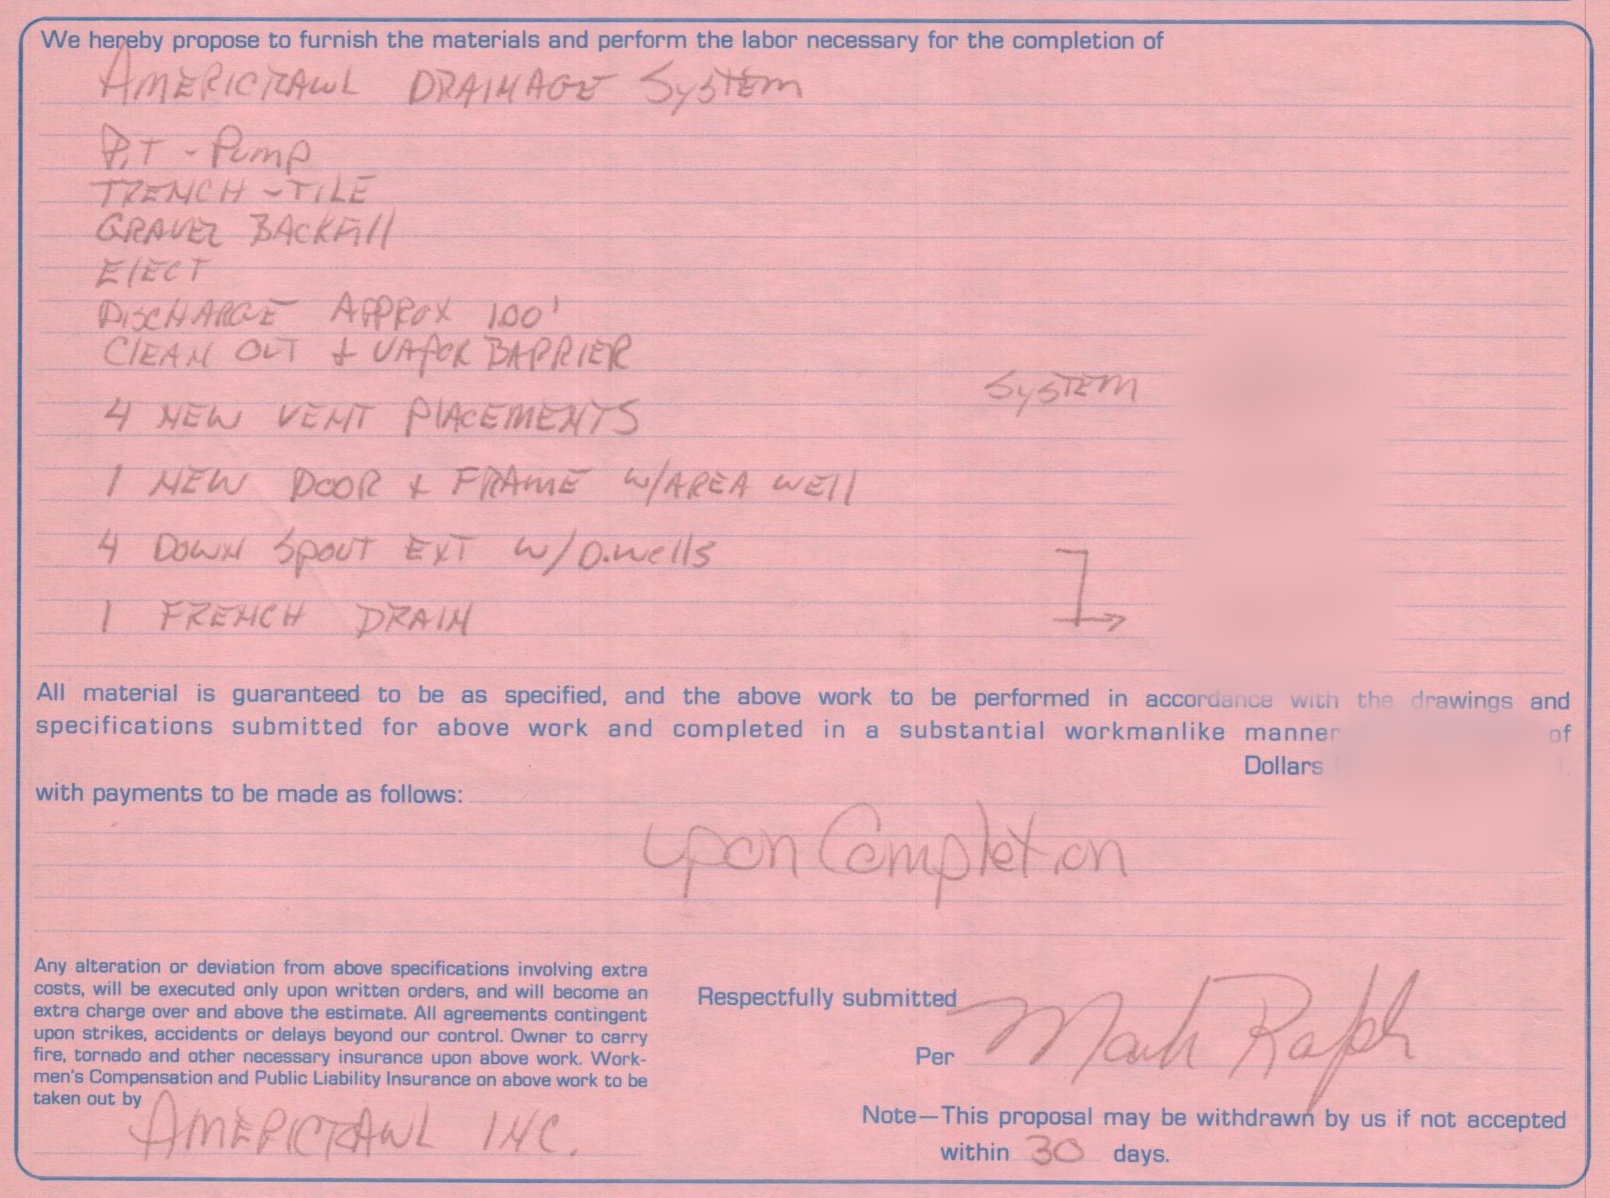 We hereby propose to furnish the materials and perform the labor necessary for the completion of
AMERICRAWL DRAINAGE SYSTEM
PIT - PUMP
TRENCH - TILE
GRAVEL BACKFILL
ELECT
DISCHARGE APPROX 100'
CLEAN OUT + VAPOR BARRIER
SYSTEM
4 NEW VENT PLACEMENTS
1 NEW DOOR + FRAME W/AREA WELL
4 DOWN SPOUT EXT W/D.WELLS
1 FRENCH DRAIN
All material is guaranteed to be as specified, and the above work to be performed in accordance with the drawings and
specifications submitted for above work and completed in a substantial workmanlike manner of
Dollars
with payments to be made as follows:
Upon Completion
Any alteration or deviation from above specifications involving extra
costs, will be executed only upon written orders, and will become an
extra charge over and above the estimate. All agreements contingent
upon strikes, accidents or delays beyond our control. Owner to carry
fire, tornado and other necessary insurance upon above work. Work-
men's Compensation and Public Liability Insurance on above work to be
taken out by
AMERICRAWL INC.
Respectfully submitted
Per Mark Ralph
Note—This proposal may be withdrawn by us if not accepted
within 30 days.